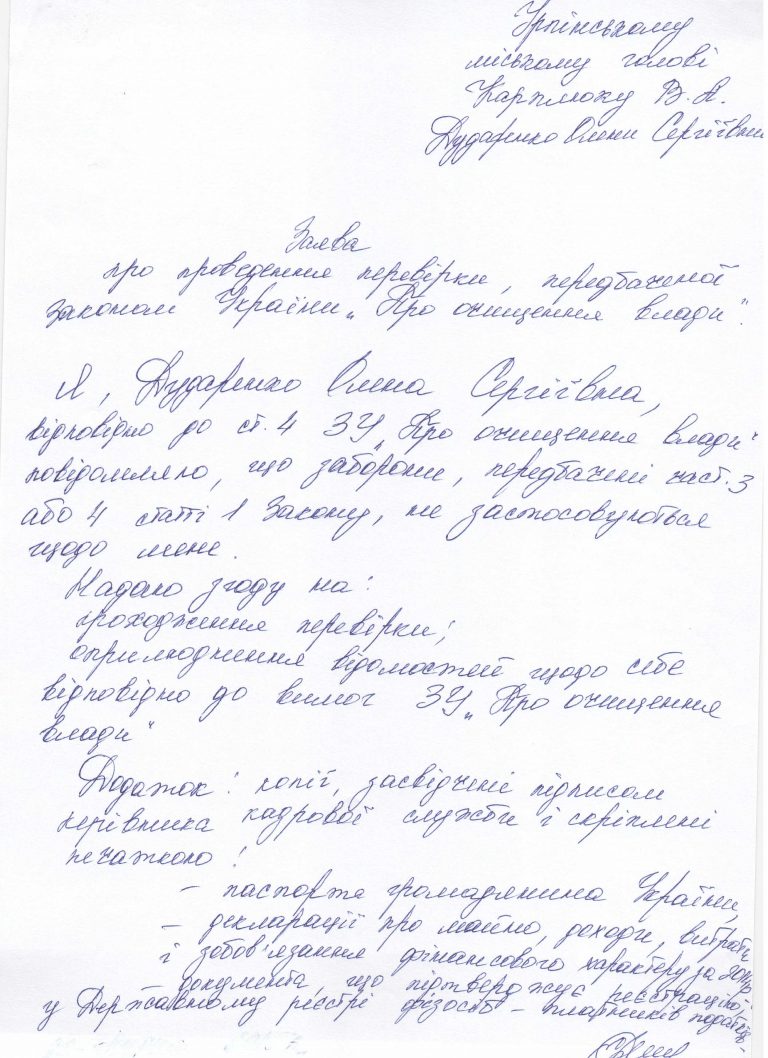 Ірпінському
міському голові
Карплюку В.А.
Дударенко Олени Сергіївни
Заява
про проведення перевірки, передбаченої
Законом України „Про очищення влади".
Я, Дударенко Олена Сергіївна,
відповідно до ст. 4 ЗУ „Про очищення влади"
повідомляю, що заборони, передбачені част. 3
або 4 статті 1 Закону, не застосовуються
щодо мене.
Надаю згоду на:
проходження перевірки;
оприлюднення відомостей щодо себе
відповідно до вимог ЗУ „Про очищення
влади"
Додаток: копії, засвідчені підписом
керівника кадрової служби і скріплені
печаткою:
– паспорта громадянина України,
– декларації про майно, доходи, витрати
і зобов'язання фінансового характеру за
документа, що підтверджує реєстрацію
у Державному реєстрі фізосіб – платників податків